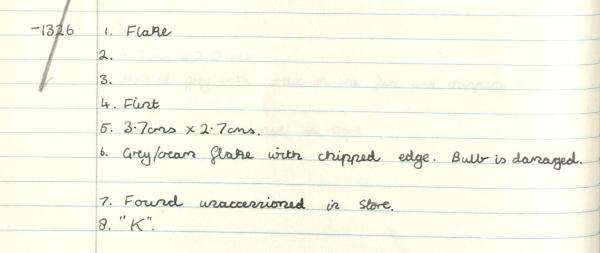 -1326 1. Flake
2.
3.
4. Flint
5. 3.7cms x 2.7cms.
6. Grey/cream flake with chipped edge. Bulb is damaged.
7. Found unaccessioned in store.
8. "K".